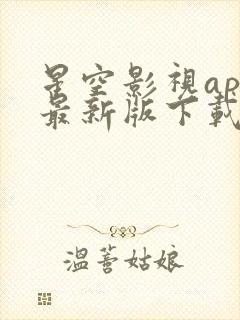 星空影視ap
最新版下載
溫薏姑娘